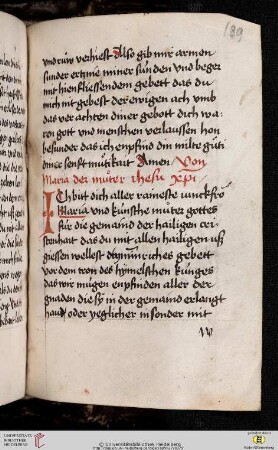 189
und rüw verhiest Also gib mir armen
sunder ertzne miner sünden und beger
mit hien fliessendem gebett das du
mich nit gebest der ewigen ach umb
das ver achten diner gebott dich wa
ron gott und menschen verlaussen hon
besunder das ich enpfind din milte güti
diner senftmütikait Amen Von
Maria der müter Jhesu xpi
ICh bit dich aller raineste junckfrö
Maria und künsche müter gottes
für die gemaind der hailigen cri
stenhait das du mit allen hailigen uß
giessen wellest diemütiches gebett
vor dem tron des hymelschen künges
das wir mügen enpfinden aller der
gnaden die sy in der gemaind erlangt
hand oder yeglicher in sonder mit
UNIVERSITÄTS-
BIBLIOTHEK
HEIDELBERG
© Universitätsbibliothek Heidelberg
Baden-Württemberg